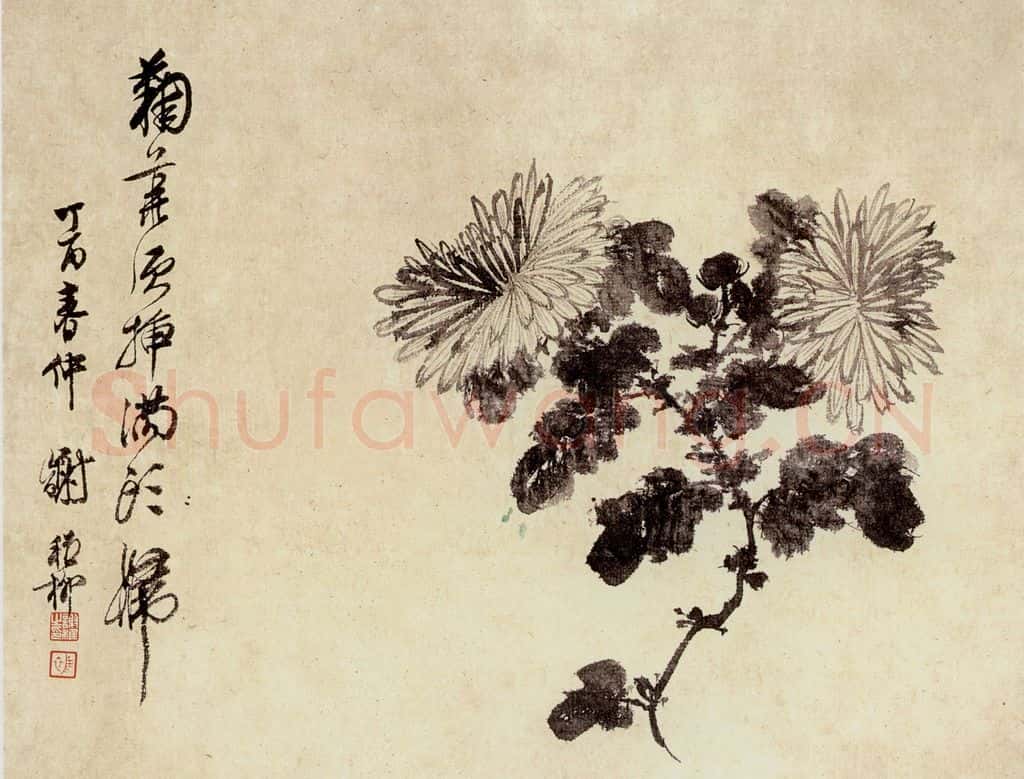 鞠華須插滿頭歸
丁酉春仲 謝稚柳
Shufawang.CN